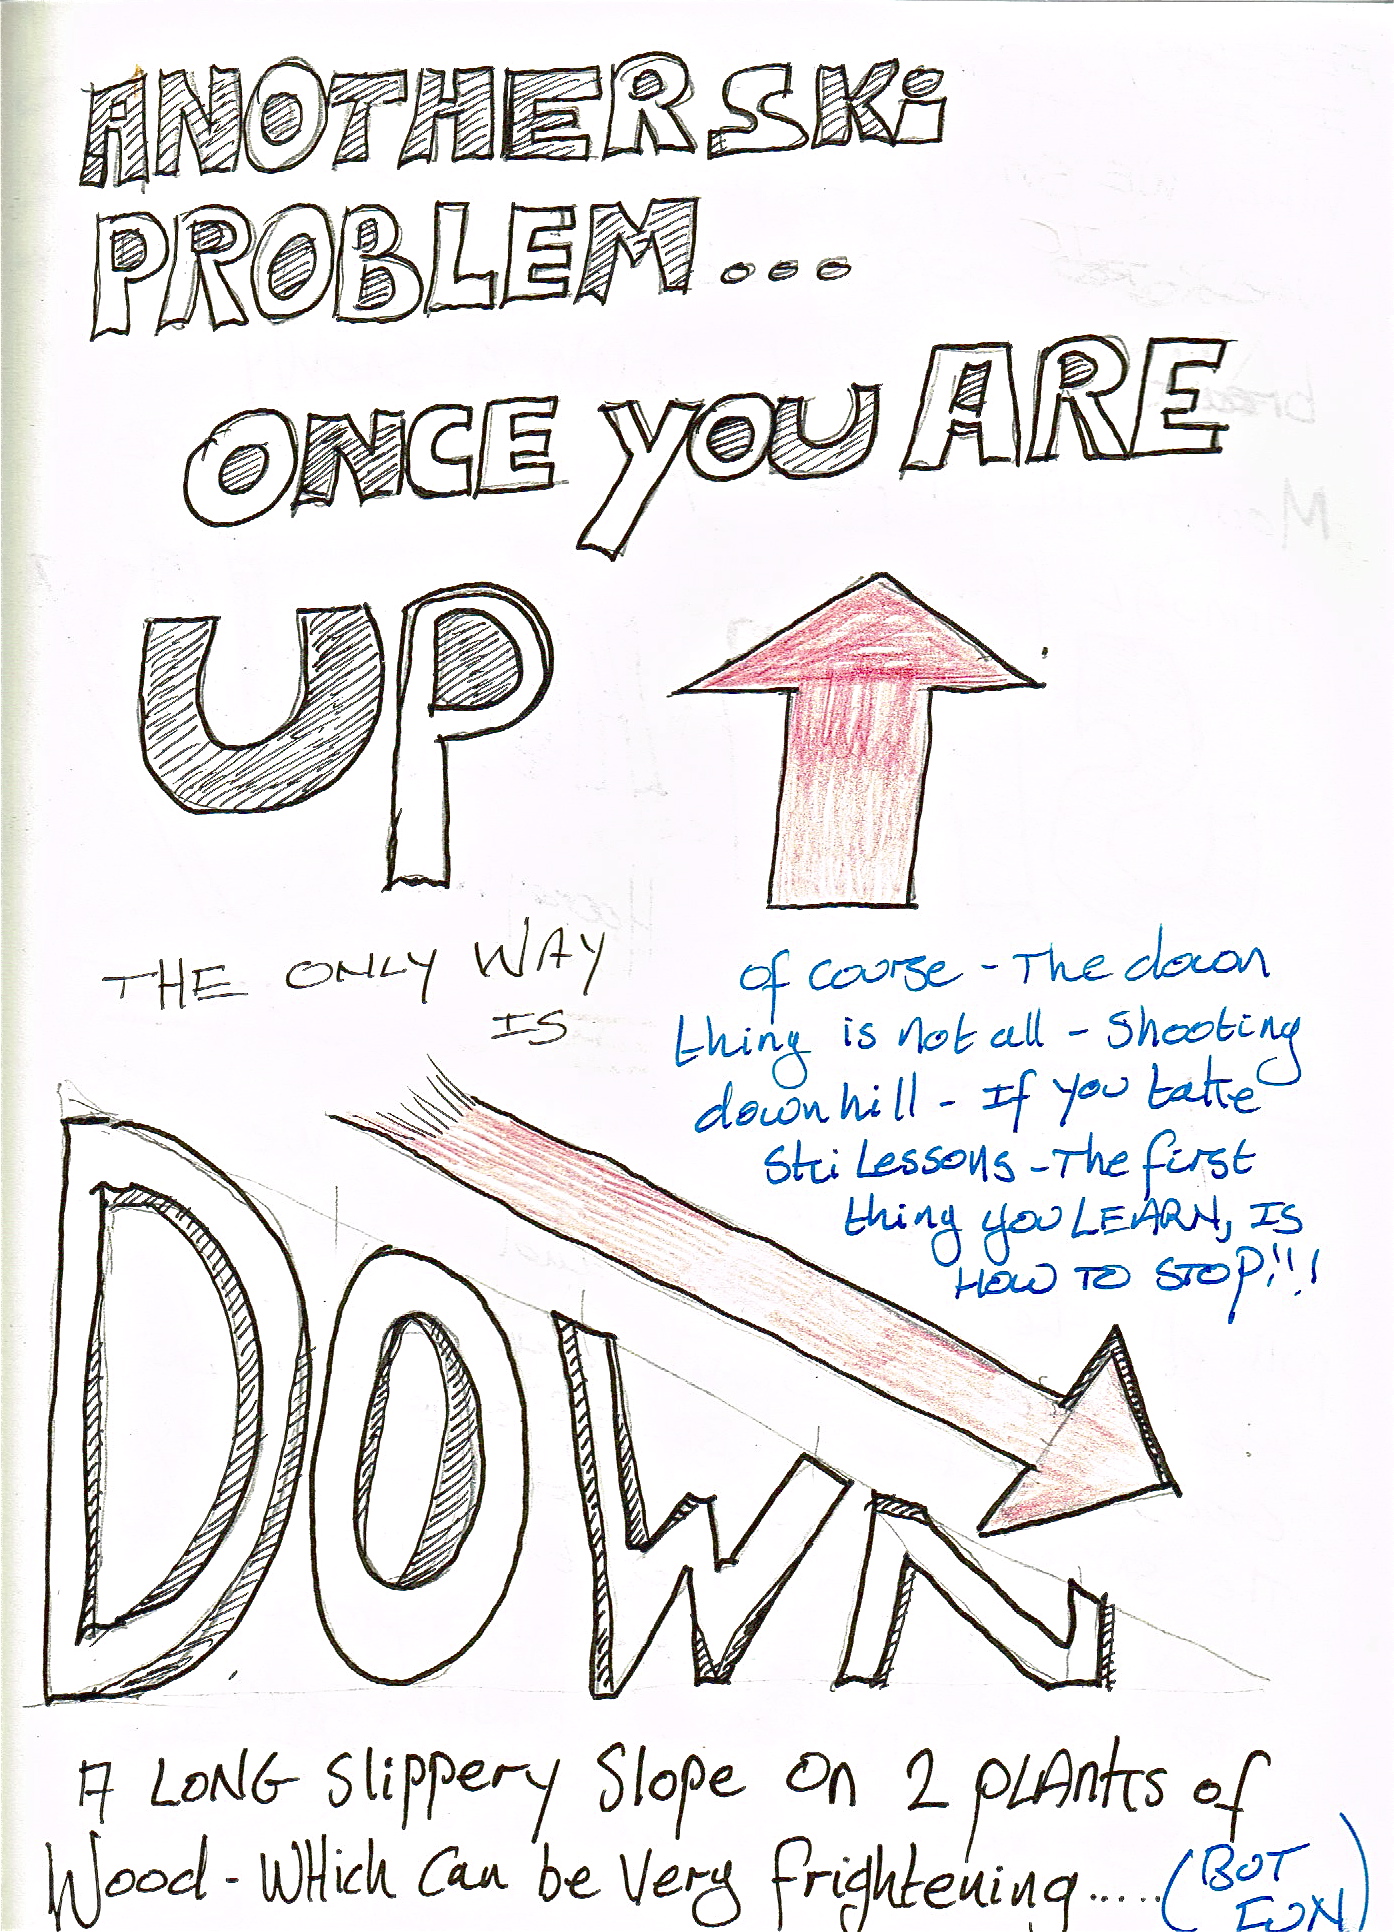 ANOTHER SKi
PROBLEM...
ONCE YOU ARE
UP
THE ONLY WAY
IS
of course - The down
thing is not all - Shooting
downhill - If you take
Ski Lessons - The first
thing you LEARN, IS
HOW TO STOP!!!
DOWN
A LONG Slippery Slope on 2 pLAnks of
Wood - WHich Can be Very frightening.....(BUT
FUN)